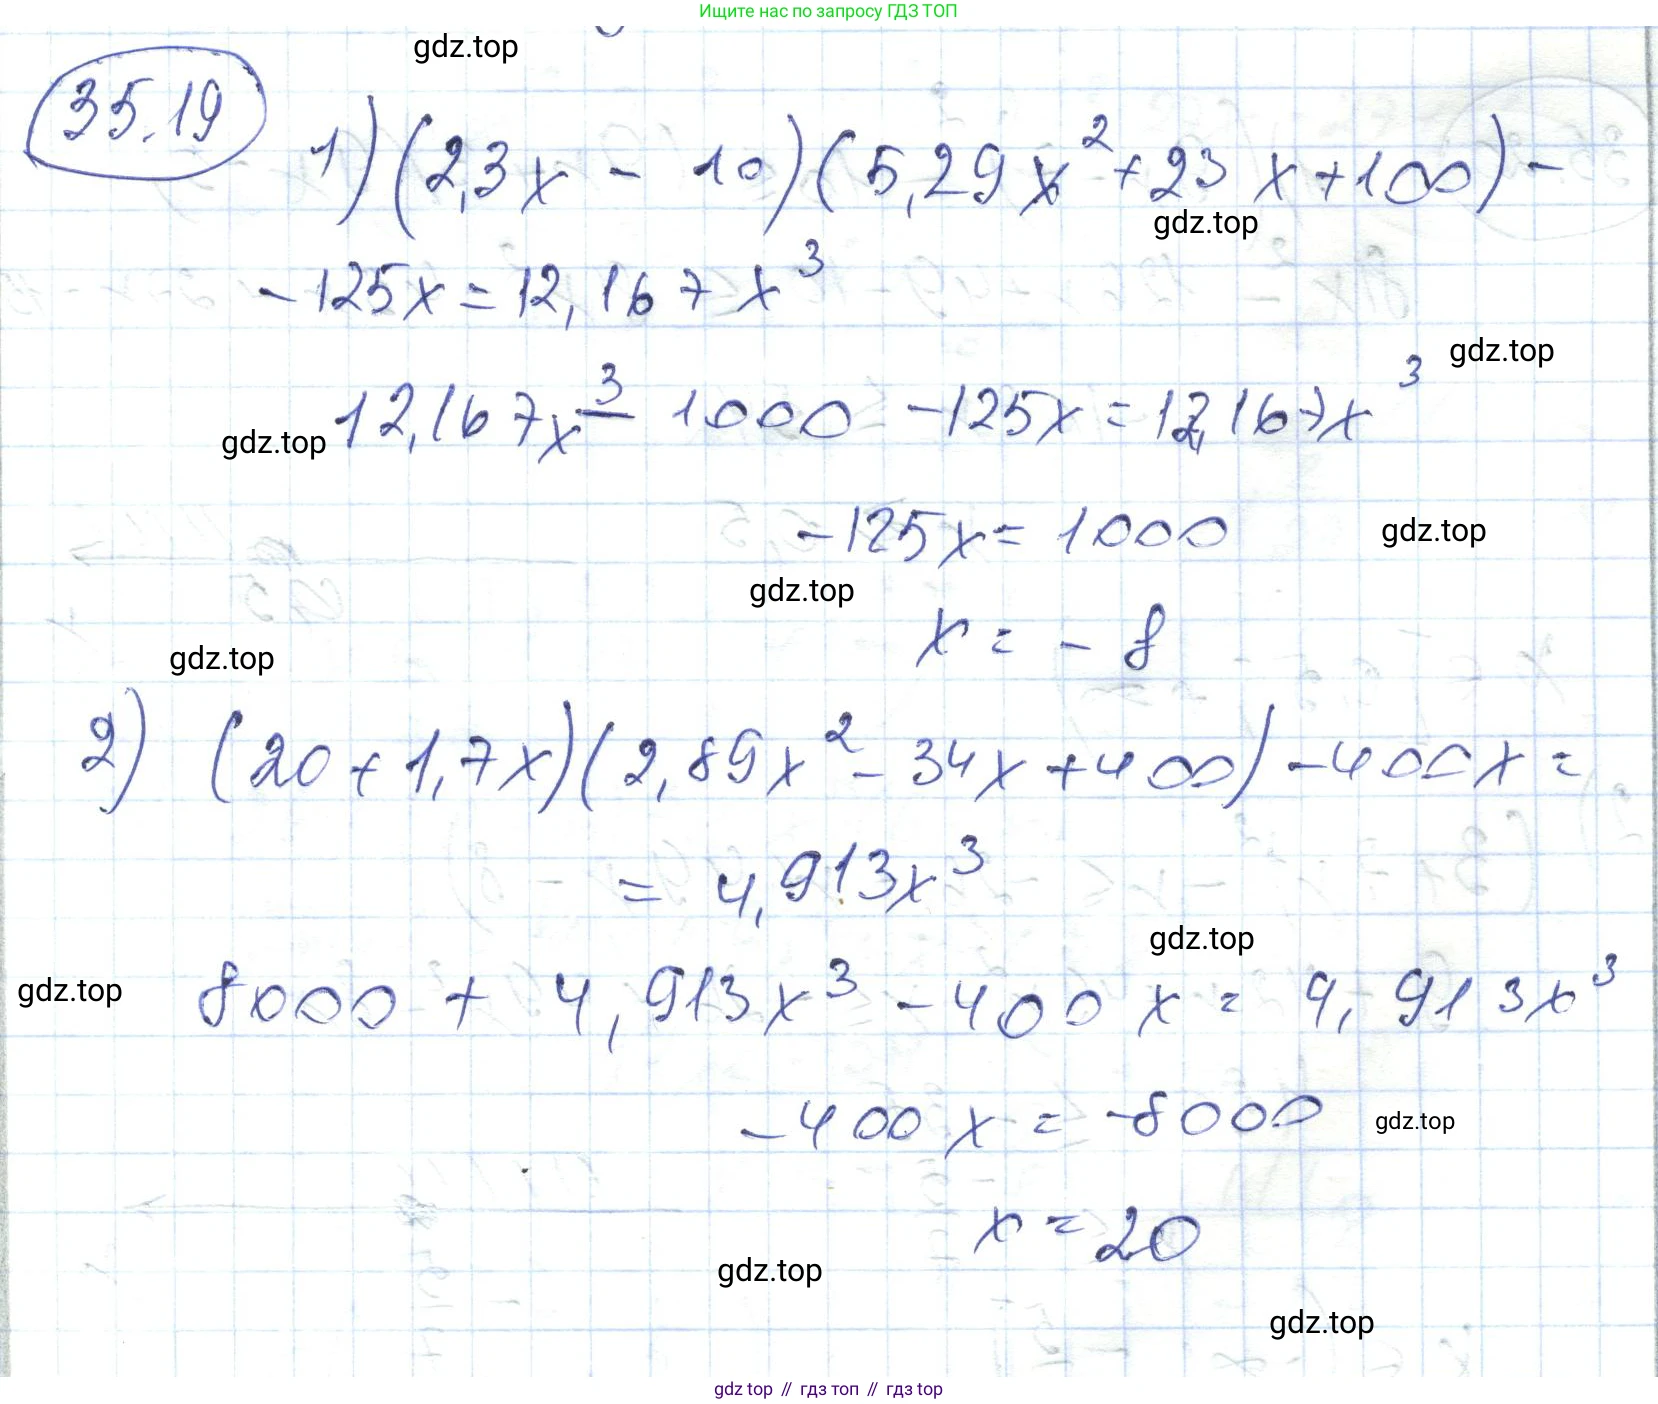 Ищите нас по запросу ГДЗ ТОП
gdz.top
35.19
1) (2,3x - 10)(5,29x² + 23x + 100) -
gdz.top
- 125x = 12,167x³
gdz.top
12,167x³ - 1000 - 125x = 12,167x³
gdz.top
- 125x = 1000
gdz.top
gdz.top
x = - 8
gdz.top
2) (20 + 1,7x)(2,89x² - 34x + 400) - 400x =
= 4,913x³
gdz.top
gdz.top
8000 + 4,913x³ - 400x = 4,913x³
- 400x = -8000
gdz.top
x = 20
gdz.top
gdz.top
gdz top // гдз топ // gdz top